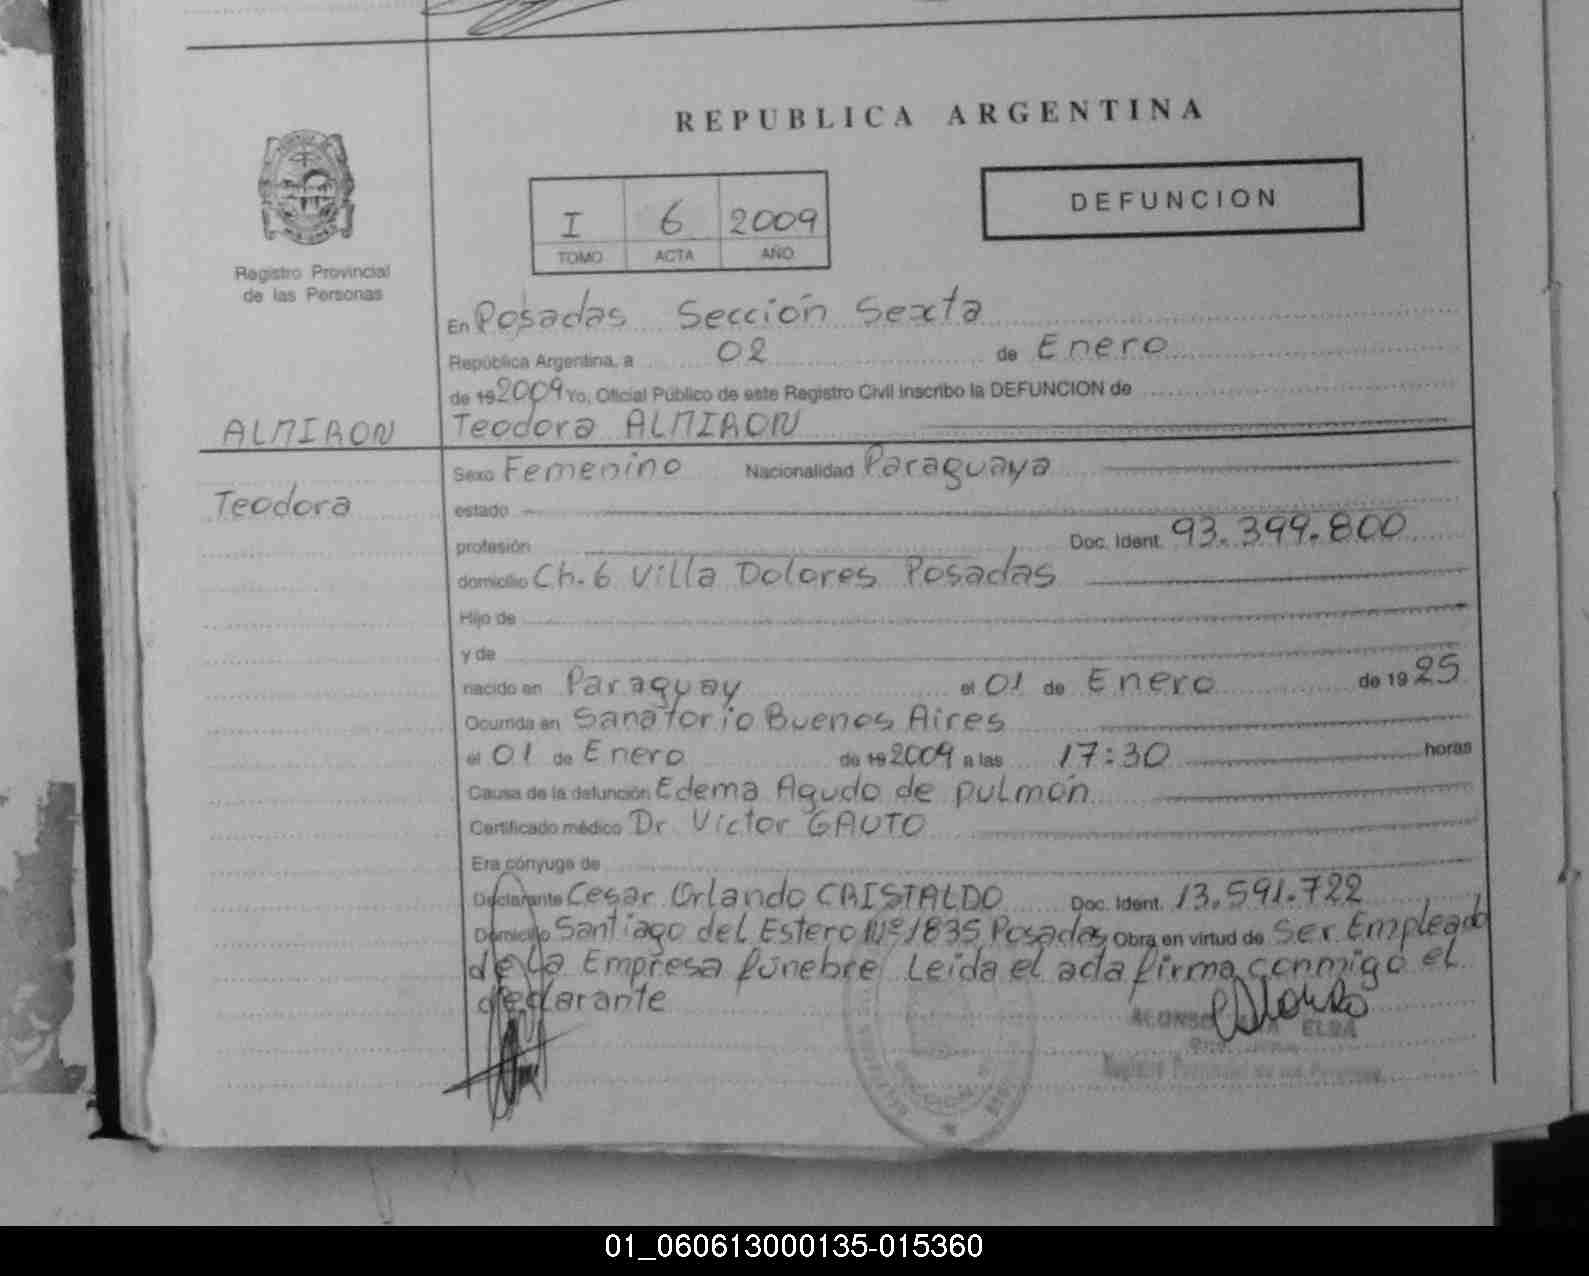 REPUBLICA ARGENTINA
DEFUNCION
I 6 2009
TOMO ACTA AÑO
Registro Provincial
de las Personas
En Posadas Sección Sexta
República Argentina, a 02 de Enero
de 19 2009 Yo, Oficial Público de este Registro Civil inscribo la DEFUNCION de
ALMIRON
Teodora ALMIRON
Sexo Femenino Nacionalidad Paraguaya
Teodora
estado
profesión Doc. Ident. 93.399.800
domicilio Ch. 6 Villa Dolores Posadas
Hijo de
y de
nacido en Paraguay el 01 de Enero de 1925
Ocurrida en Sanatorio Buenos Aires
el 01 de Enero de 19 2009 a las 17:30 horas
Causa de la defunción Edema Agudo de pulmón
Certificado médico Dr. Victor GAUTO
Era cónyuge de
Declarante Cesar Orlando CRISTALDO Doc. Ident. 13.591.722
Domicilio Santiago del Estero Nº 1835 Posadas Obra en virtud de Ser Empleado
de la Empresa fúnebre Leída el acta firma conmigo el
declarante
ALONSO ELBA
Registro Provincial de las Personas
01_060613000135-015360